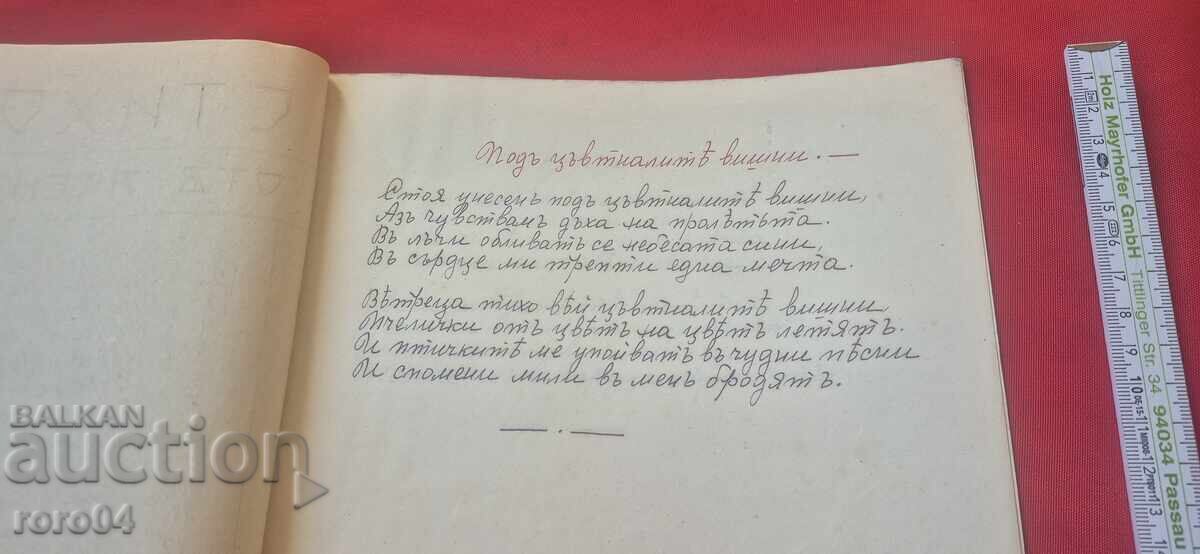 Подъ цъвтналитѣ вишни. —
Стоя унесенъ подъ цъвтналитѣ вишни,
Азъ чувствамъ дъха на пролѣтьта.
Въ лъчи обливатъ се небесата сини,
Въ сърдце ми трепти една мечта.
Вѣтреца тихо вѣй цъвтналитѣ вишни,
Пчелички отъ цвѣтъ на цвѣтъ летятъ.
И птичкитѣ ме упойватъ въ чудни пѣсни
И спомени мили въ менъ бродятъ.
— . —
BALKAN
auction
roro04
Holz Mayrhofer GmbH Tittlinger Str. 34 94034 Passau
1 2 3 4 5 6 7 8 9 10 11 12 13